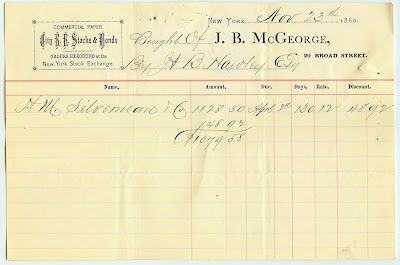 COMMERCIAL PAPER,
City R. R. Stocks & Bonds
ORDERS EXECUTED at the
New York Stock Exchange.
NEW YORK, Nov 23rd 1880.
Bought Of J. B. MCGEORGE,
By H B Hawley Esq 20 BROAD STREET.
Name. Amount. Due. Days. Rate. Discount.
H M Silverman & C 1128 50 Apl 2d 130 12 48 92
48 92
$1079 58